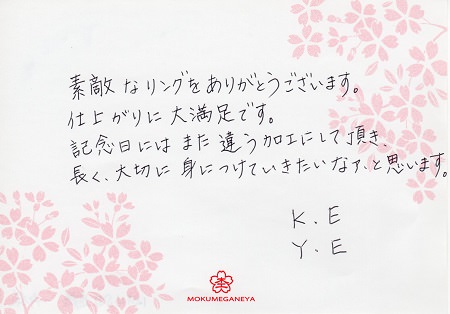 素敵なリングをありがとうございます。
仕上がりに大満足です。
記念日にはまた違う加工にして頂き、
長く、大切に身につけていきたいなァ、と思います。
K.E
Y.E
MOKUMEGANEYA